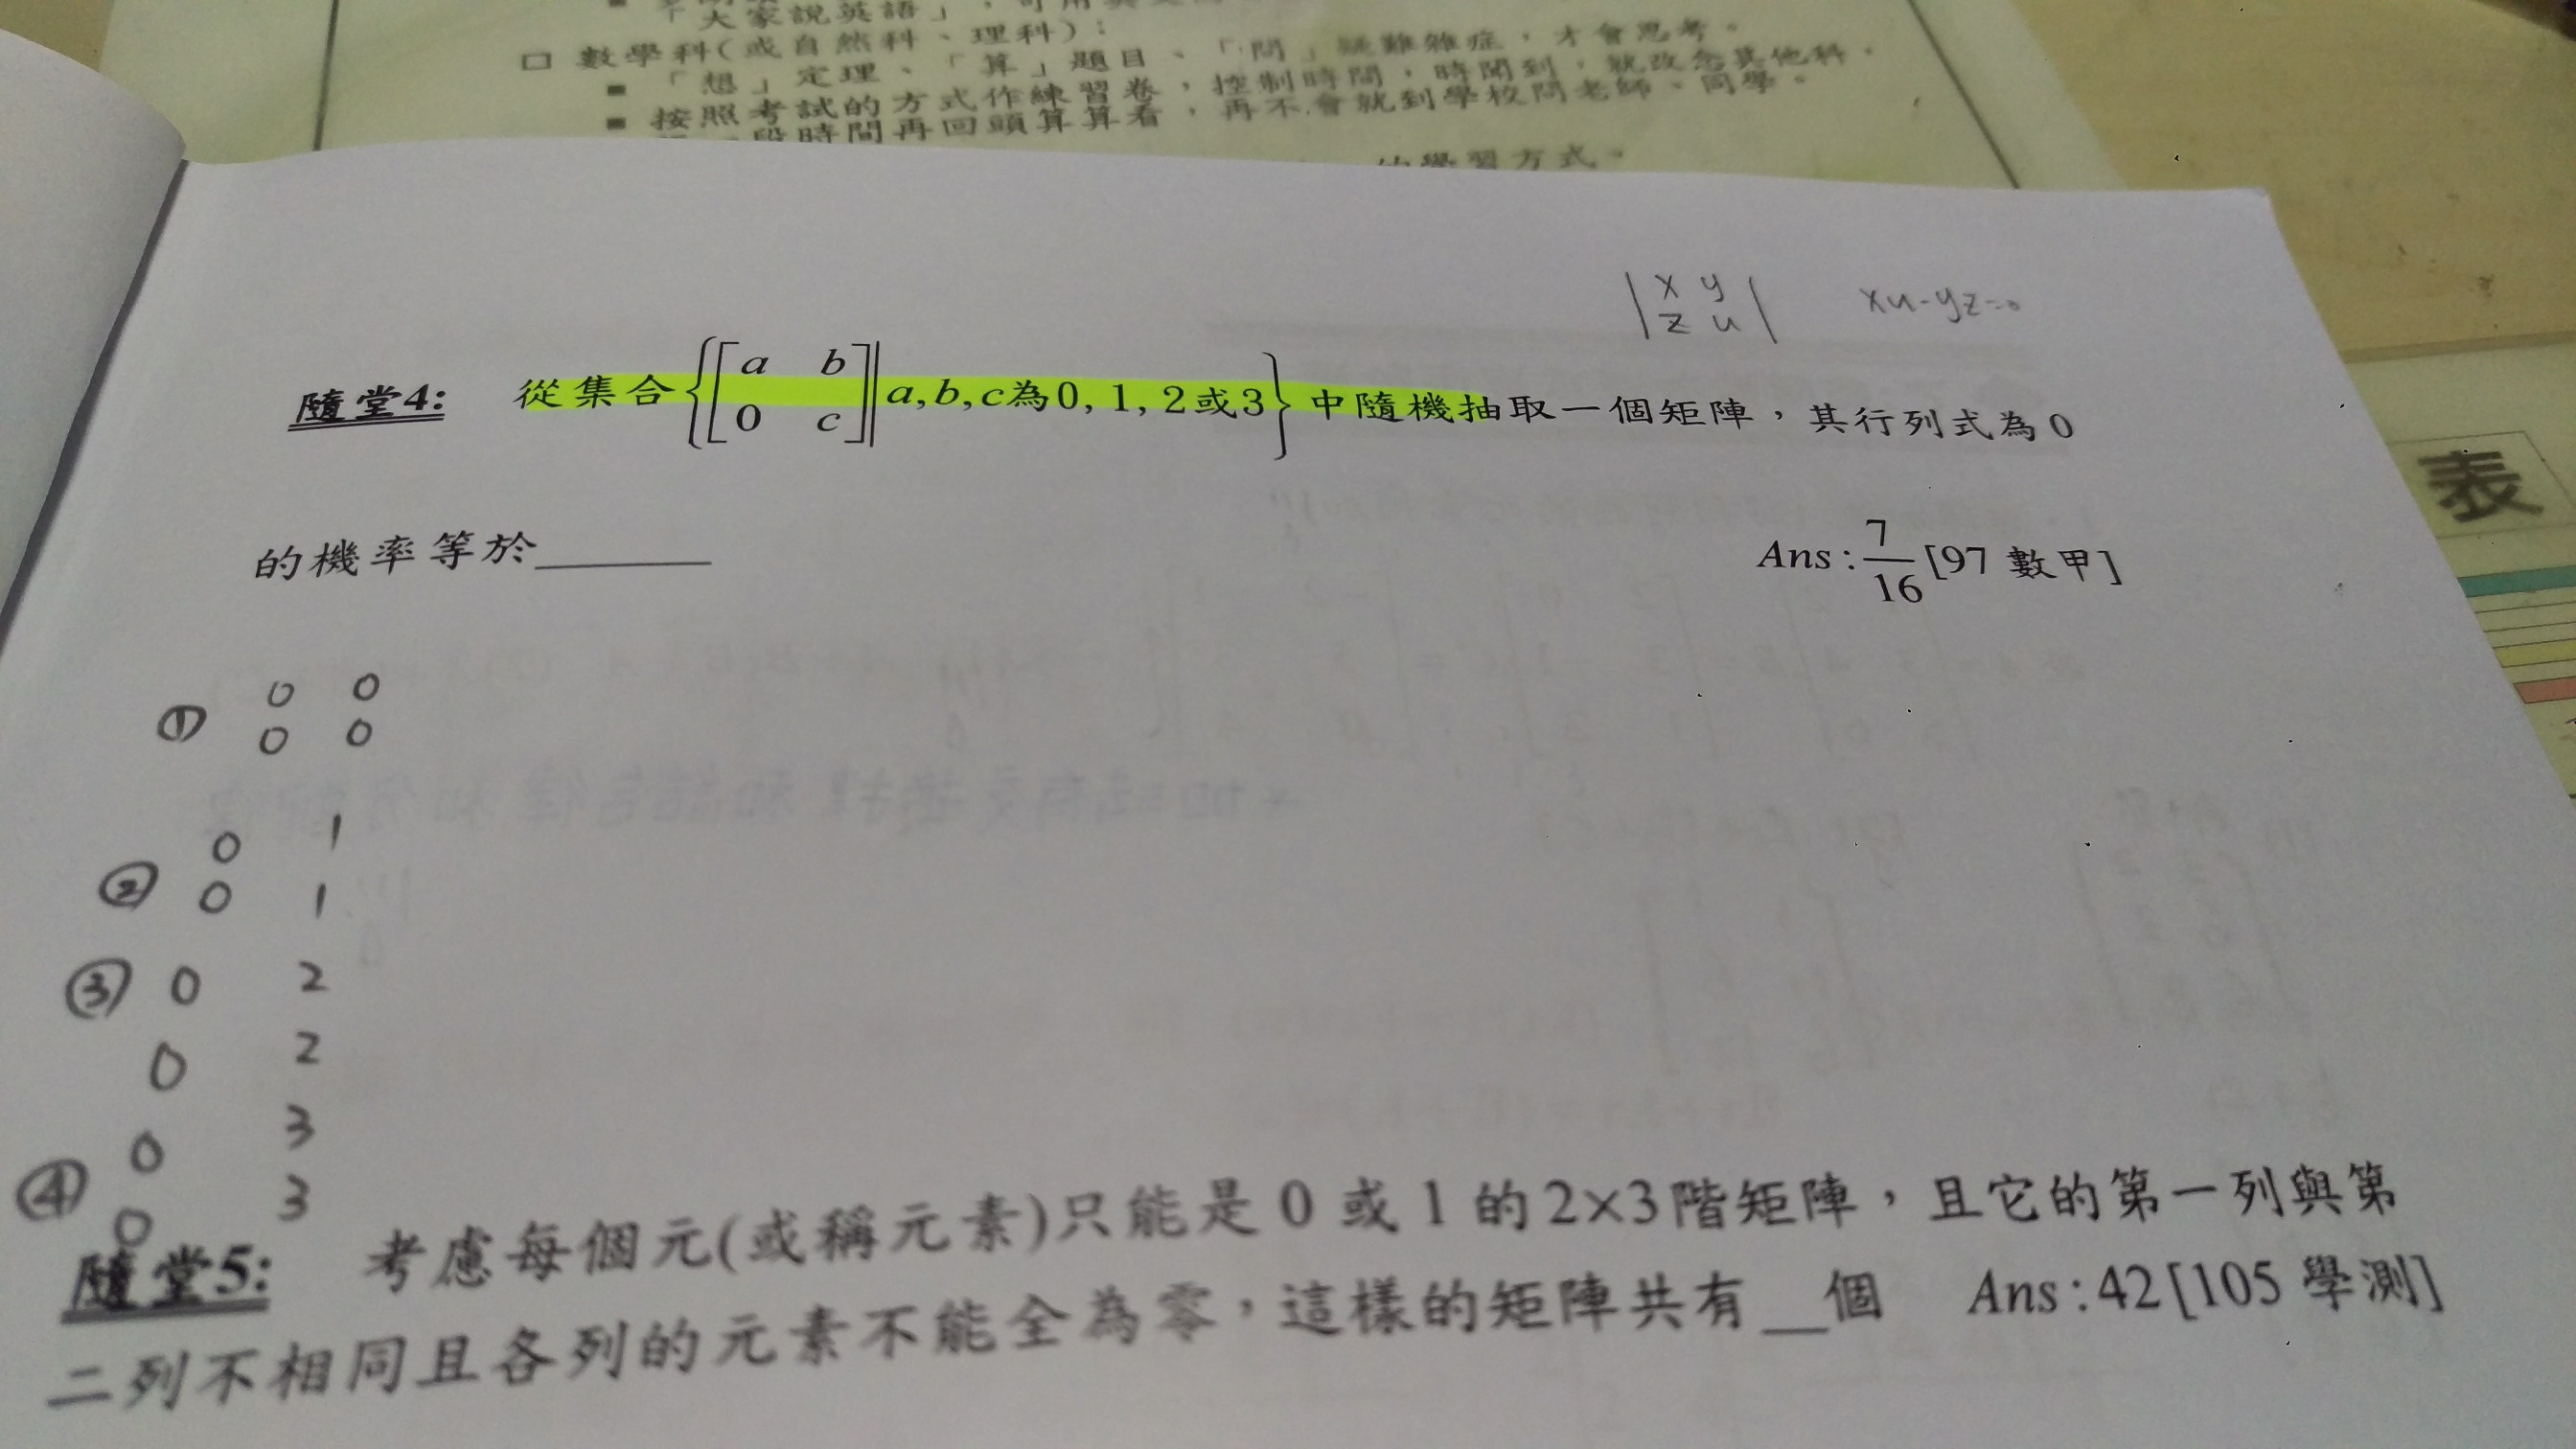 「大家說英語」，可用
□ 數學科(或自然科、理科)：
■ 「想」定理、「算」題目、「問」疑難雜症，才會思考。
■ 按照考試的方式作練習卷，控制時間，時間到，就改念其他科，
段時間再回頭算算看，再不會就到學校問老師、同學。
的學習方式。
表
| x y |
| z u | xu-yz=0
隨堂4: 從集合{[a b; 0 c]| a, b, c為0, 1, 2或3}中隨機抽取一個矩陣，其行列式為0
的機率等於______
Ans : 7/16 [97 數甲]
① 0 0
0 0
② 0 1
0 1
③ 0 2
0 2
④ 0 3
0 3
隨堂5: 考慮每個元(或稱元素)只能是 0 或 1 的 2×3階矩陣，且它的第一列與第
二列不相同且各列的元素不能全為零，這樣的矩陣共有__個 Ans : 42 [105 學測]